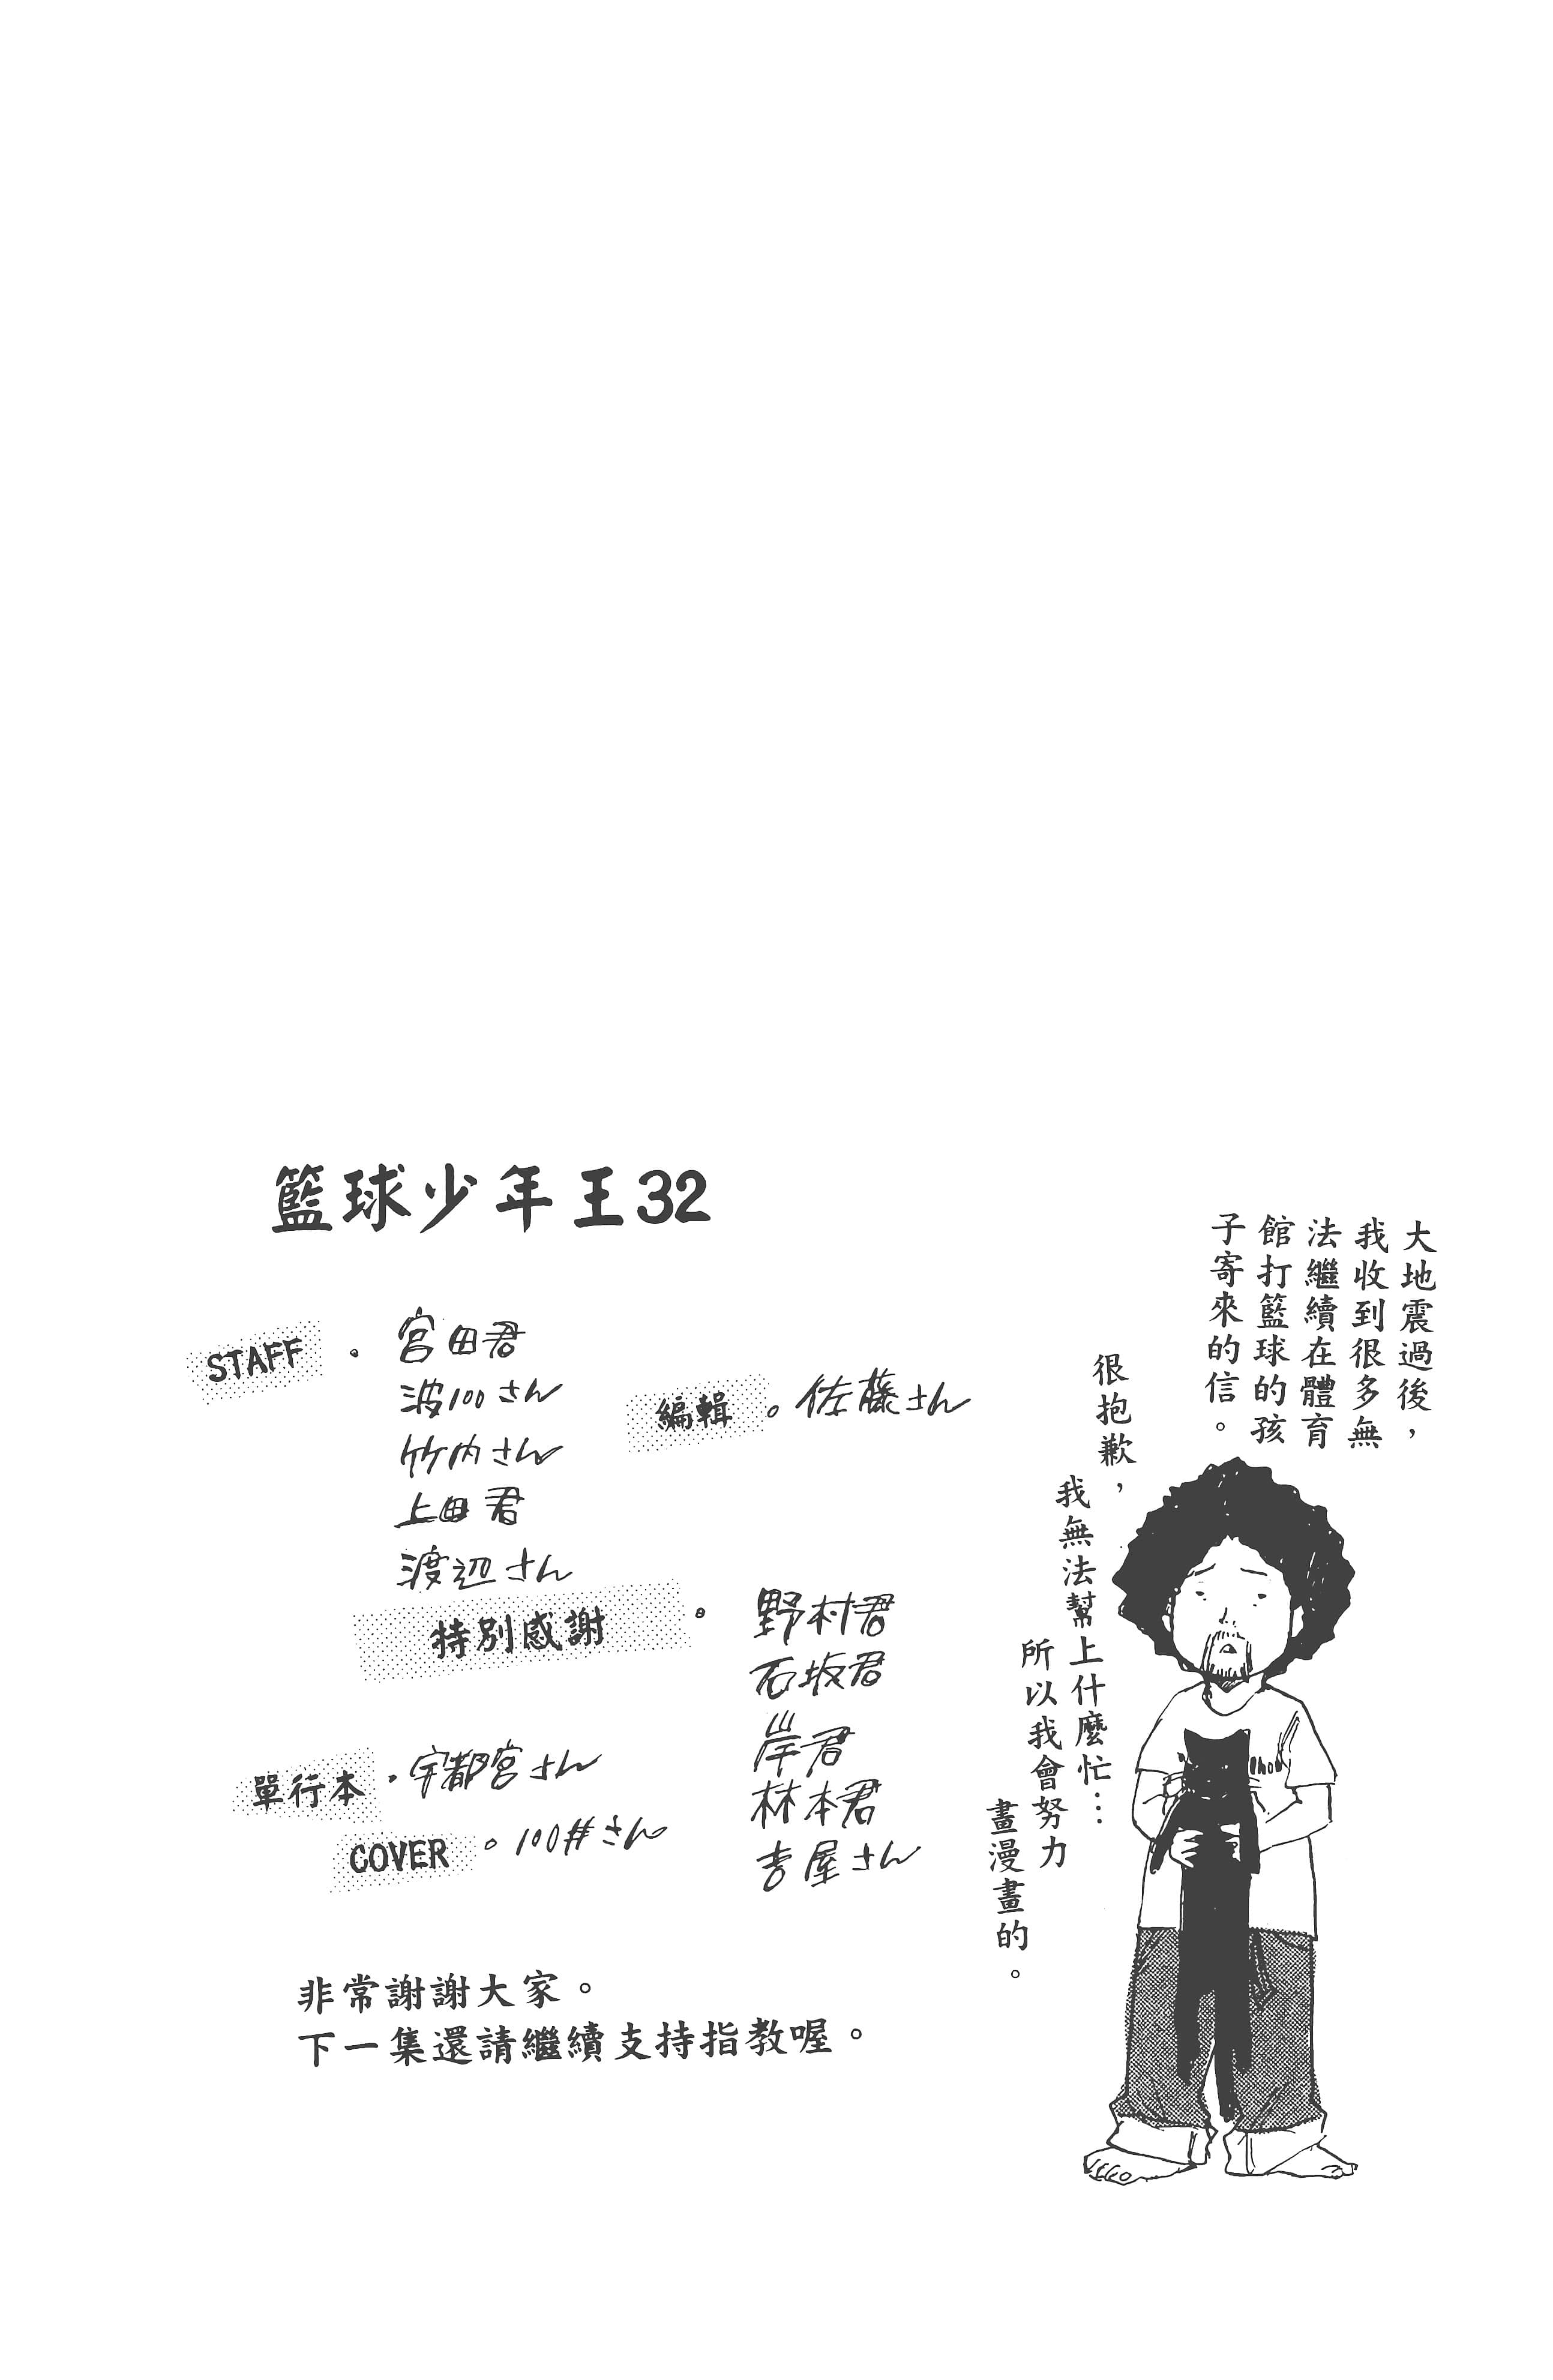 籃球少年王32
STAFF・
宮田君
波100さん
竹内さん
上田君
渡辺さん
編輯。佐藤さん
特別感謝。
野村君
石坂君
岸君
林本君
吉屋さん
單行本・宇都宮さん
COVER。100井さん
非常謝謝大家。
下一集還請繼續支持指教喔。
大地震過後，
我收到很多無
法繼續在體育
館打籃球的孩
子寄來的信。
很抱歉，
我無法幫上什麼忙…
所以我會努力
畫漫畫的。